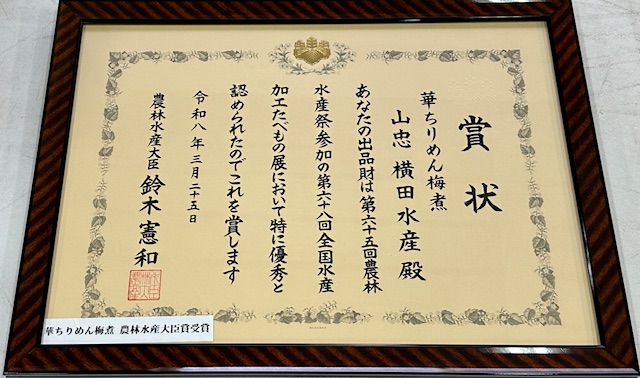 賞状
華ちりめん梅煮
山忠 横田水産 殿
あなたの出品財は第六十五回農林
水産祭参加の第六十八回全国水産
加工たべもの展において特に優秀と
認められたのでこれを賞します
令和八年三月二十五日
農林水産大臣 鈴木憲和
華ちりめん梅煮 農林水産大臣賞受賞